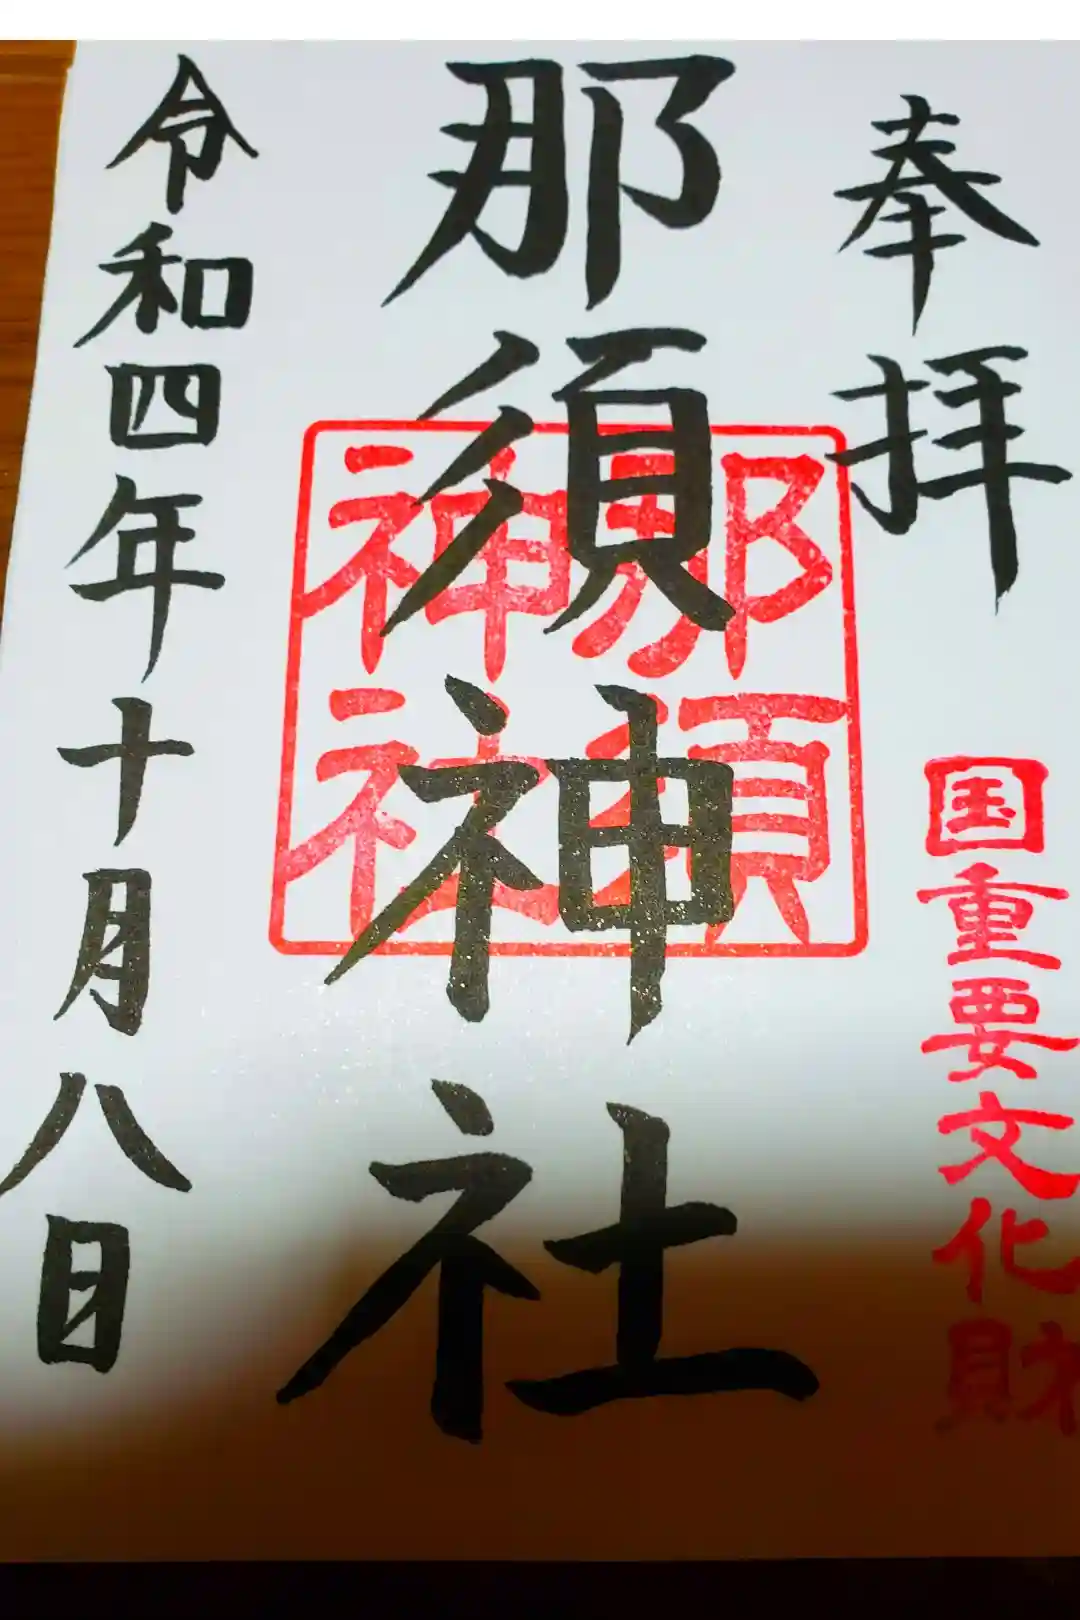 奉拝
国重要文化財
那須神社
那須
神社
令和四年十月八日